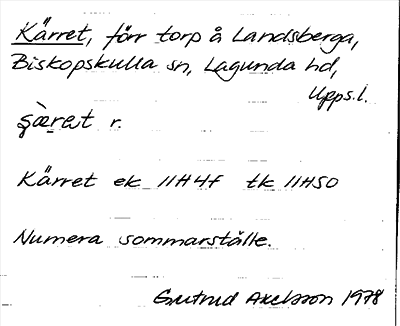 Kärret, förr torp å Landsberga,
Biskopskulla sn, Lagunda hd,
Upps.l.
r.
Kärret ek 11H4f tk 11HSO
Numera sommarställe.
Gertrud Axelsson 1978